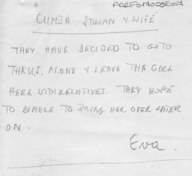 STOIAN & WIFE
THEY HAVE DECIDED TO GO TO
THE U.S. ALONE & LEAVE THE GIRL
HERE WITH RELATIVES. THEY HOPE
TO BE ABLE TO BRING HER OVER LATER
ON.
Eva.